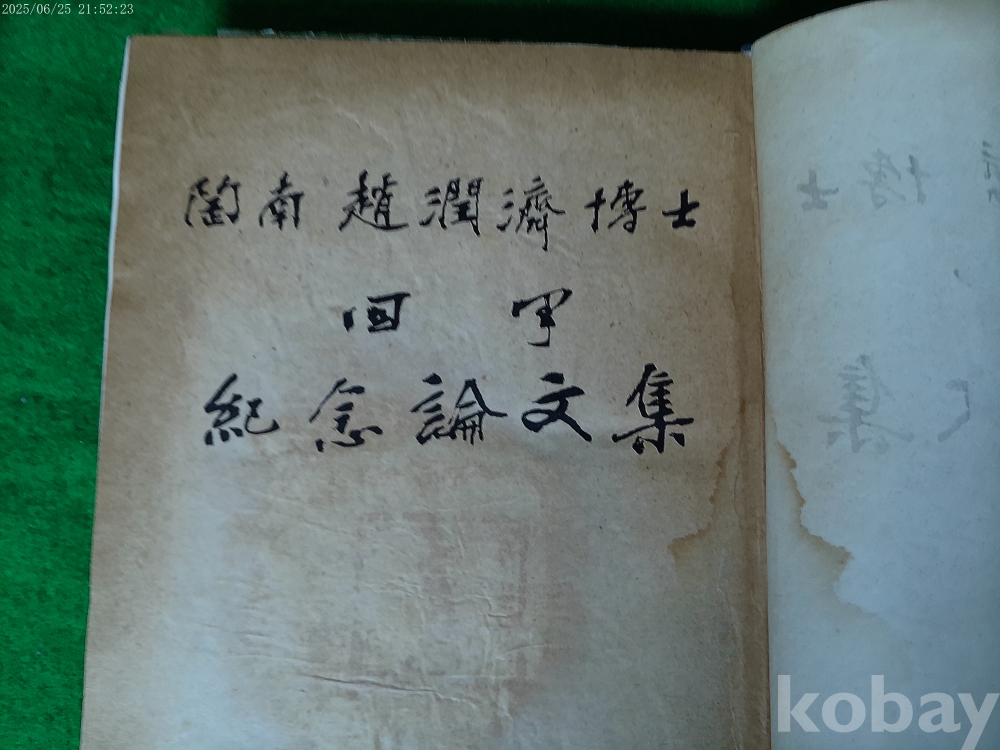 2025/06/25 21:52:23
陶南趙潤濟博士
回甲
紀念論文集
kobay